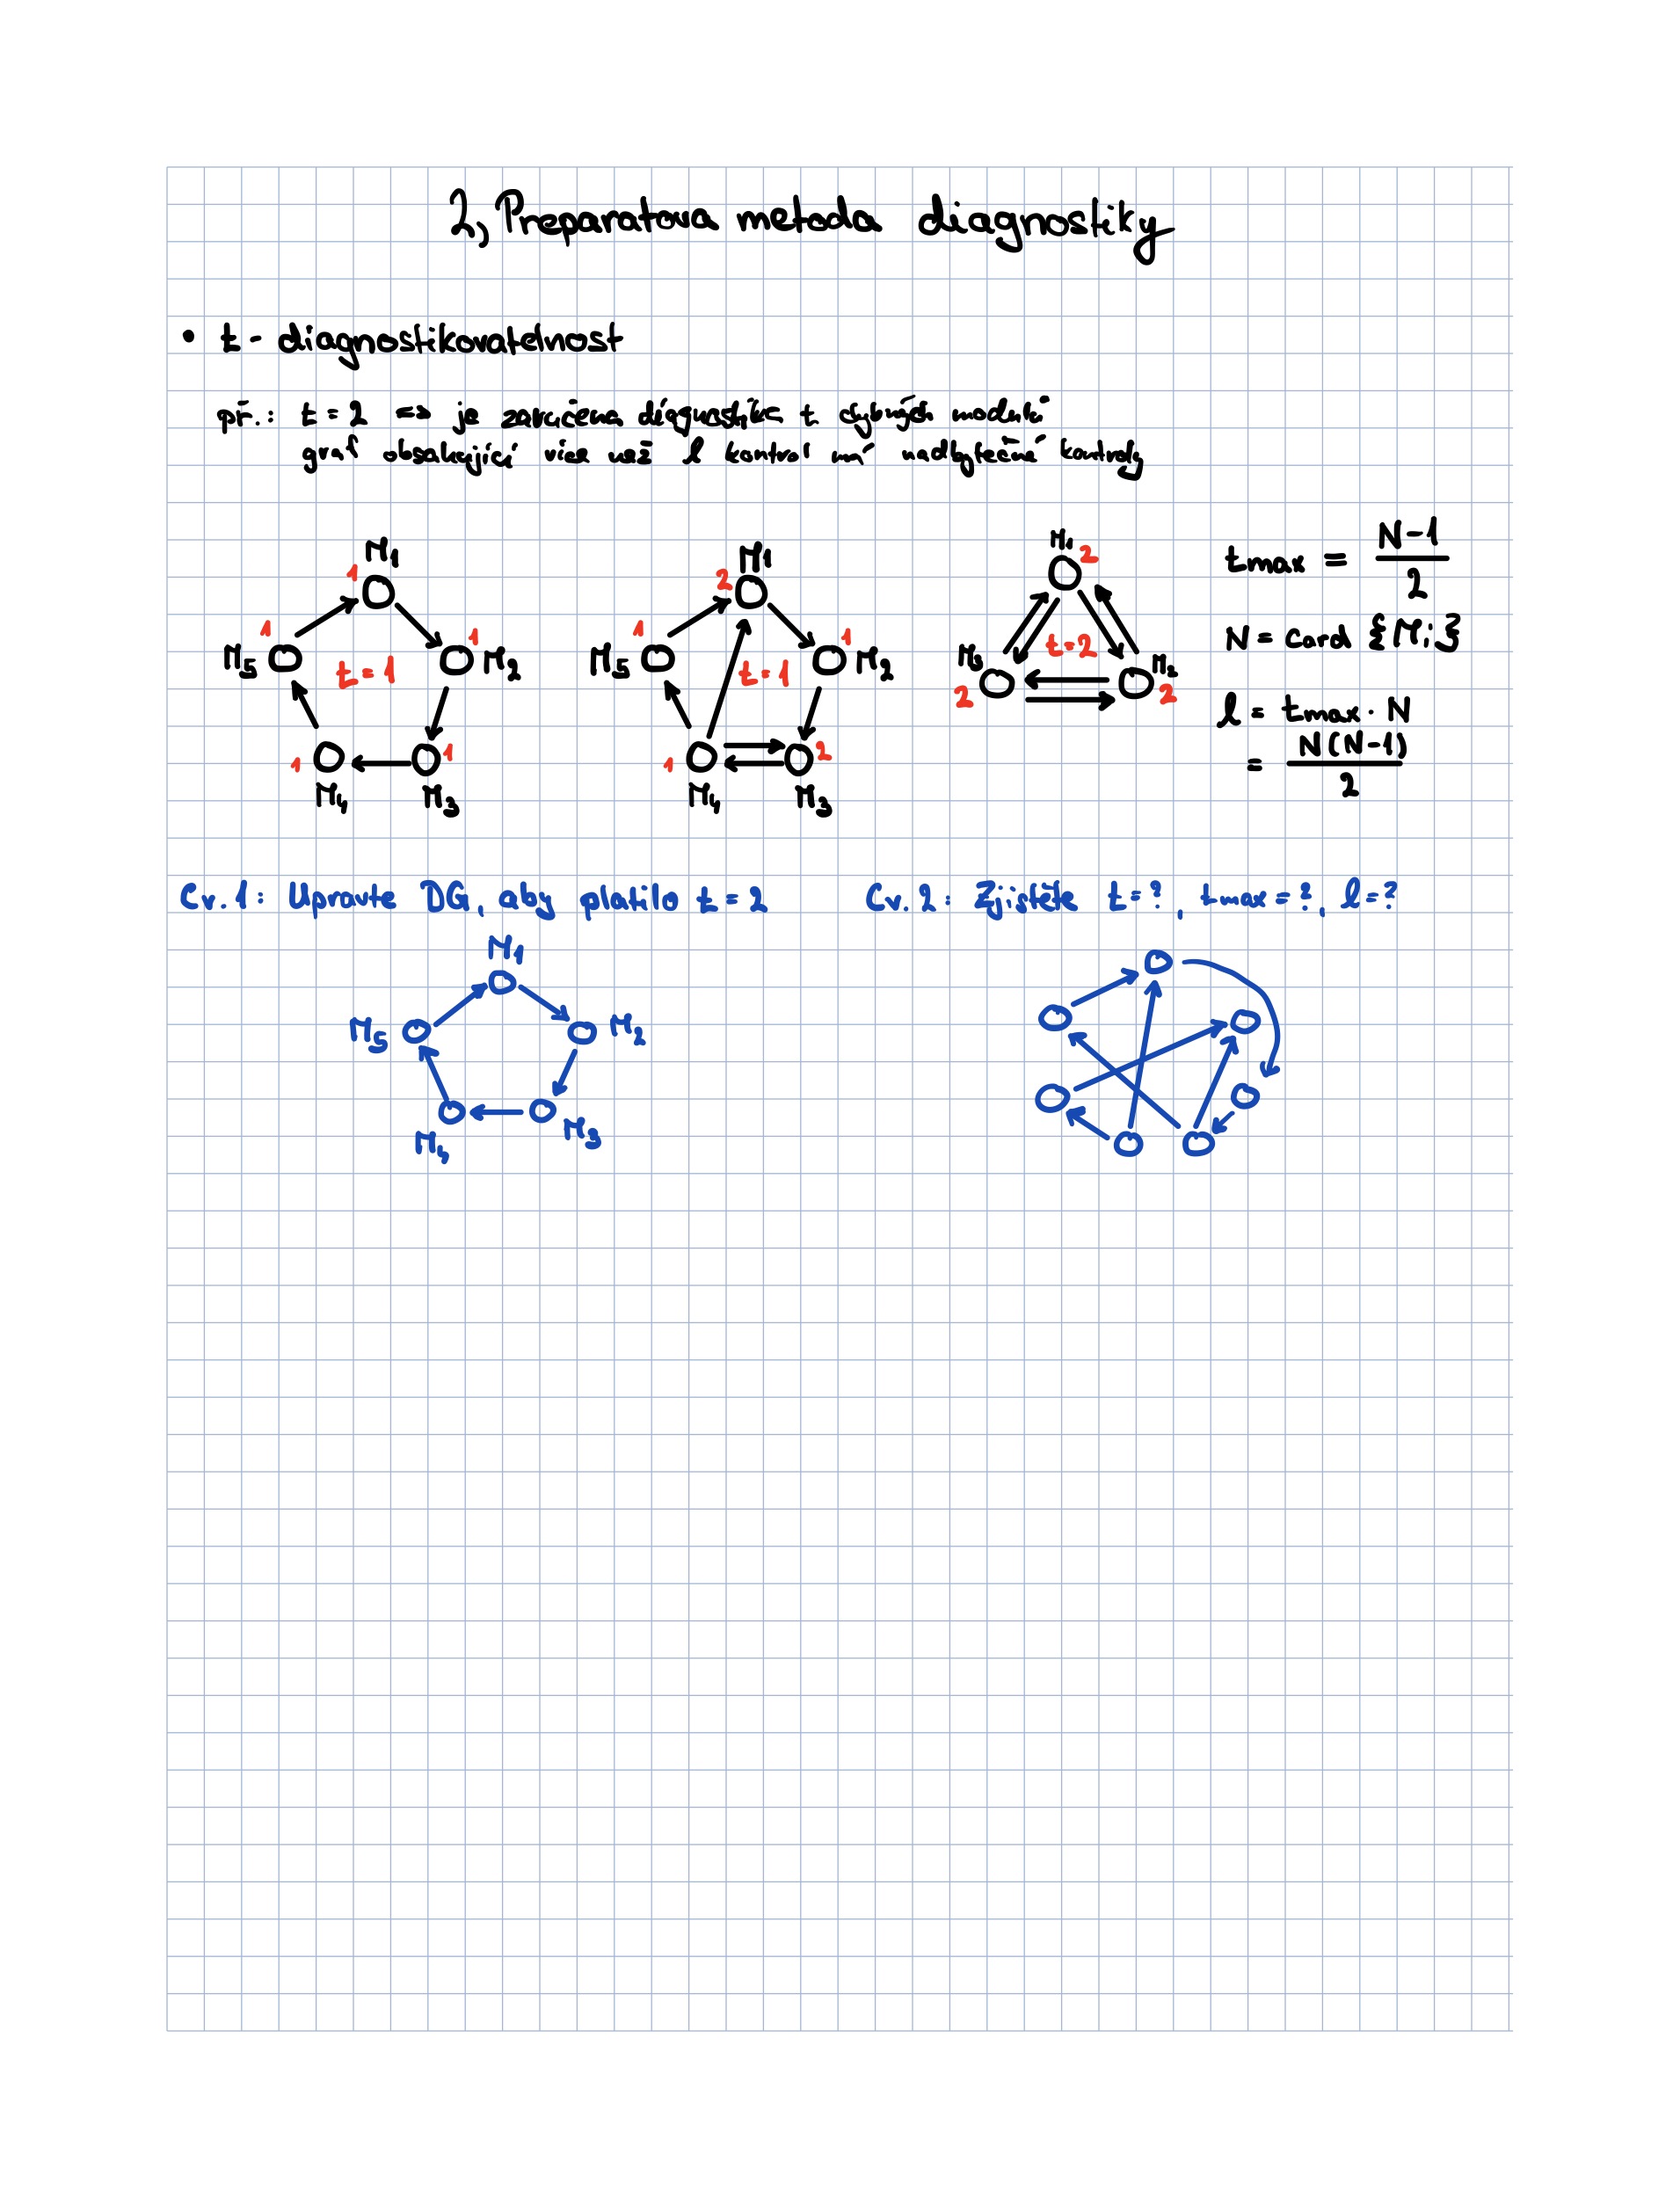 2, Preparatova metoda diagnostiky
• t - diagnostikovatelnost
př.: t = 2 => je zaručena diagnostika t chybných modulů
graf obsahující více než l kontrol má nadbytečné kontroly
M1
1
1
M5
t = 1
1
M2
1
M4
1
M3
M1
2
1
M5
t = 1
1
M2
1
M4
2
M3
M1
2
t=2
M3
2
M2
2
tmax = N-1
2
N = card {Mi}
l = tmax · N
= N(N-1)
2
Cv. 1: Upravte DG, aby platilo t = 2
M1
M5
M2
M4
M3
Cv. 2: Zjistěte t=?, tmax=?, l=?